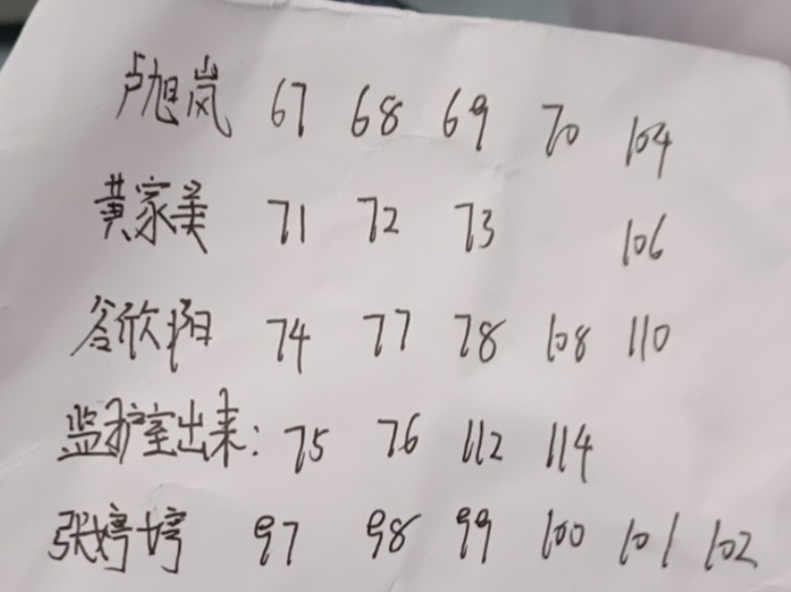 卢旭岚 67 68 69 70 104
黄家美 71 72 73 106
谷欣阳 74 77 78 108 110
监护室出来: 75 76 112 114
张婷婷 97 98 99 100 101 102